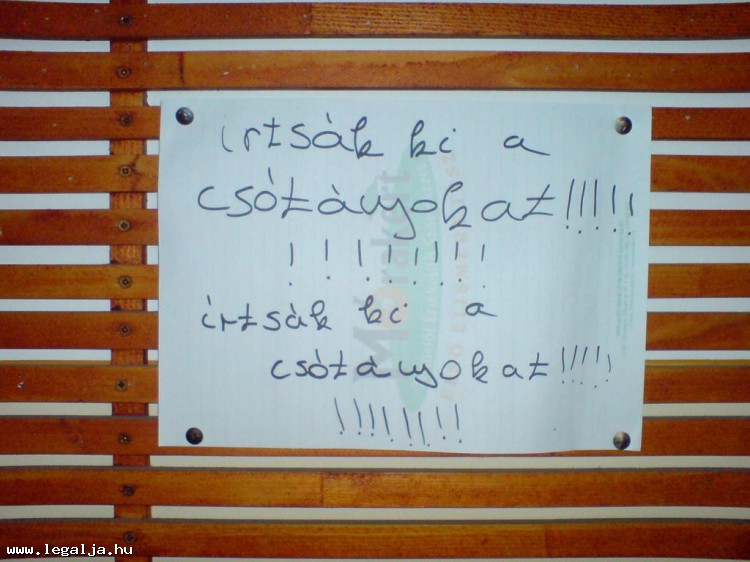 irtsàk ki a
csótànyokat!!!!!
!!!!!!!!
irtsàk ki a
csótànyokat!!!!!
!!!!!!!!
www.legalja.hu